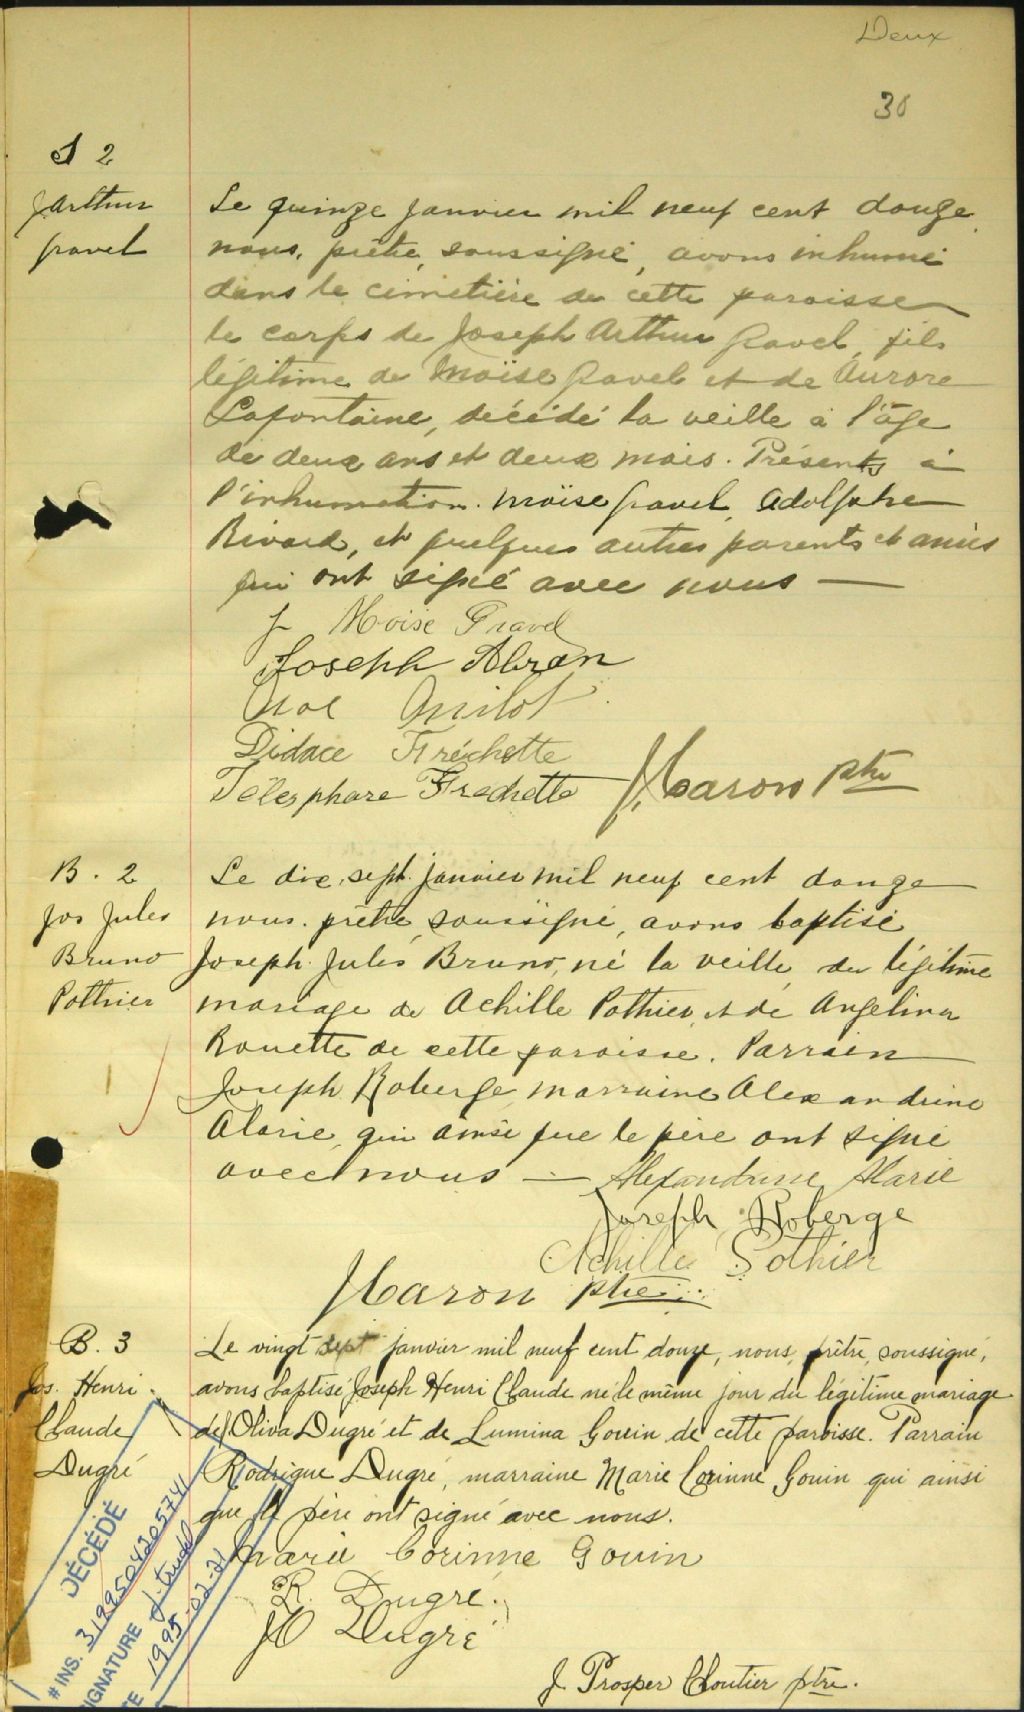 Deux
30
S 2
J Arthur
Gravel
Le quinze janvier mil neuf cent douze
nous, prêtre, soussigné, avons inhumé
dans le cimetière de cette paroisse
le corps de Joseph Arthur Gravel, fils
légitime de Moïse Gravel et de Aurore
Lafontaine, décédé la veille à l'âge
de deux ans et deux mois. Présents à
l'inhumation. Moïse Gravel, Adolphe
Rivard, et quelques autres parents et amis
qui ont signé avec nous —
J Moise Gravel
Joseph Abran
Noe Milot
Didace Fréchette
Télesphore Fréchette
Maron ptre
B. 2
Jos Jules
Bruno
Pothier
Le dix-sept janvier mil neuf cent douze
nous. prêtre, soussigné, avons baptisé
Joseph Jules Bruno, né la veille, du légitime
mariage de Achille Pothier et de Angelina
Rouette de cette paroisse. Parrain
Joseph Roberge, marraine Alexandrine
Alarie, qui ainsi que le père ont signé
avec nous — Alexandrine Alarie
Joseph Roberge
Achille Pothier
Maron ptre
B. 3
Jos. Henri
Claude
Dugré
Le vingt sept janvier mil neuf cent douze, nous, prêtre, soussigné,
avons baptisé Joseph Henri Claude né le même jour du légitime mariage
de Oliva Dugré et de Lumina Gouin de cette paroisse. Parrain
Rodrigue Dugré, marraine Marie Corinne Gouin qui ainsi
que le père ont signé avec nous.
Marie Corinne Gouin
R. Dugré.
Dugré
J. Prosper Cloutier ptre.
DÉCÉDÉ
# INS. 3199504205741
SIGNATURE J. Trudel
1995-02-21